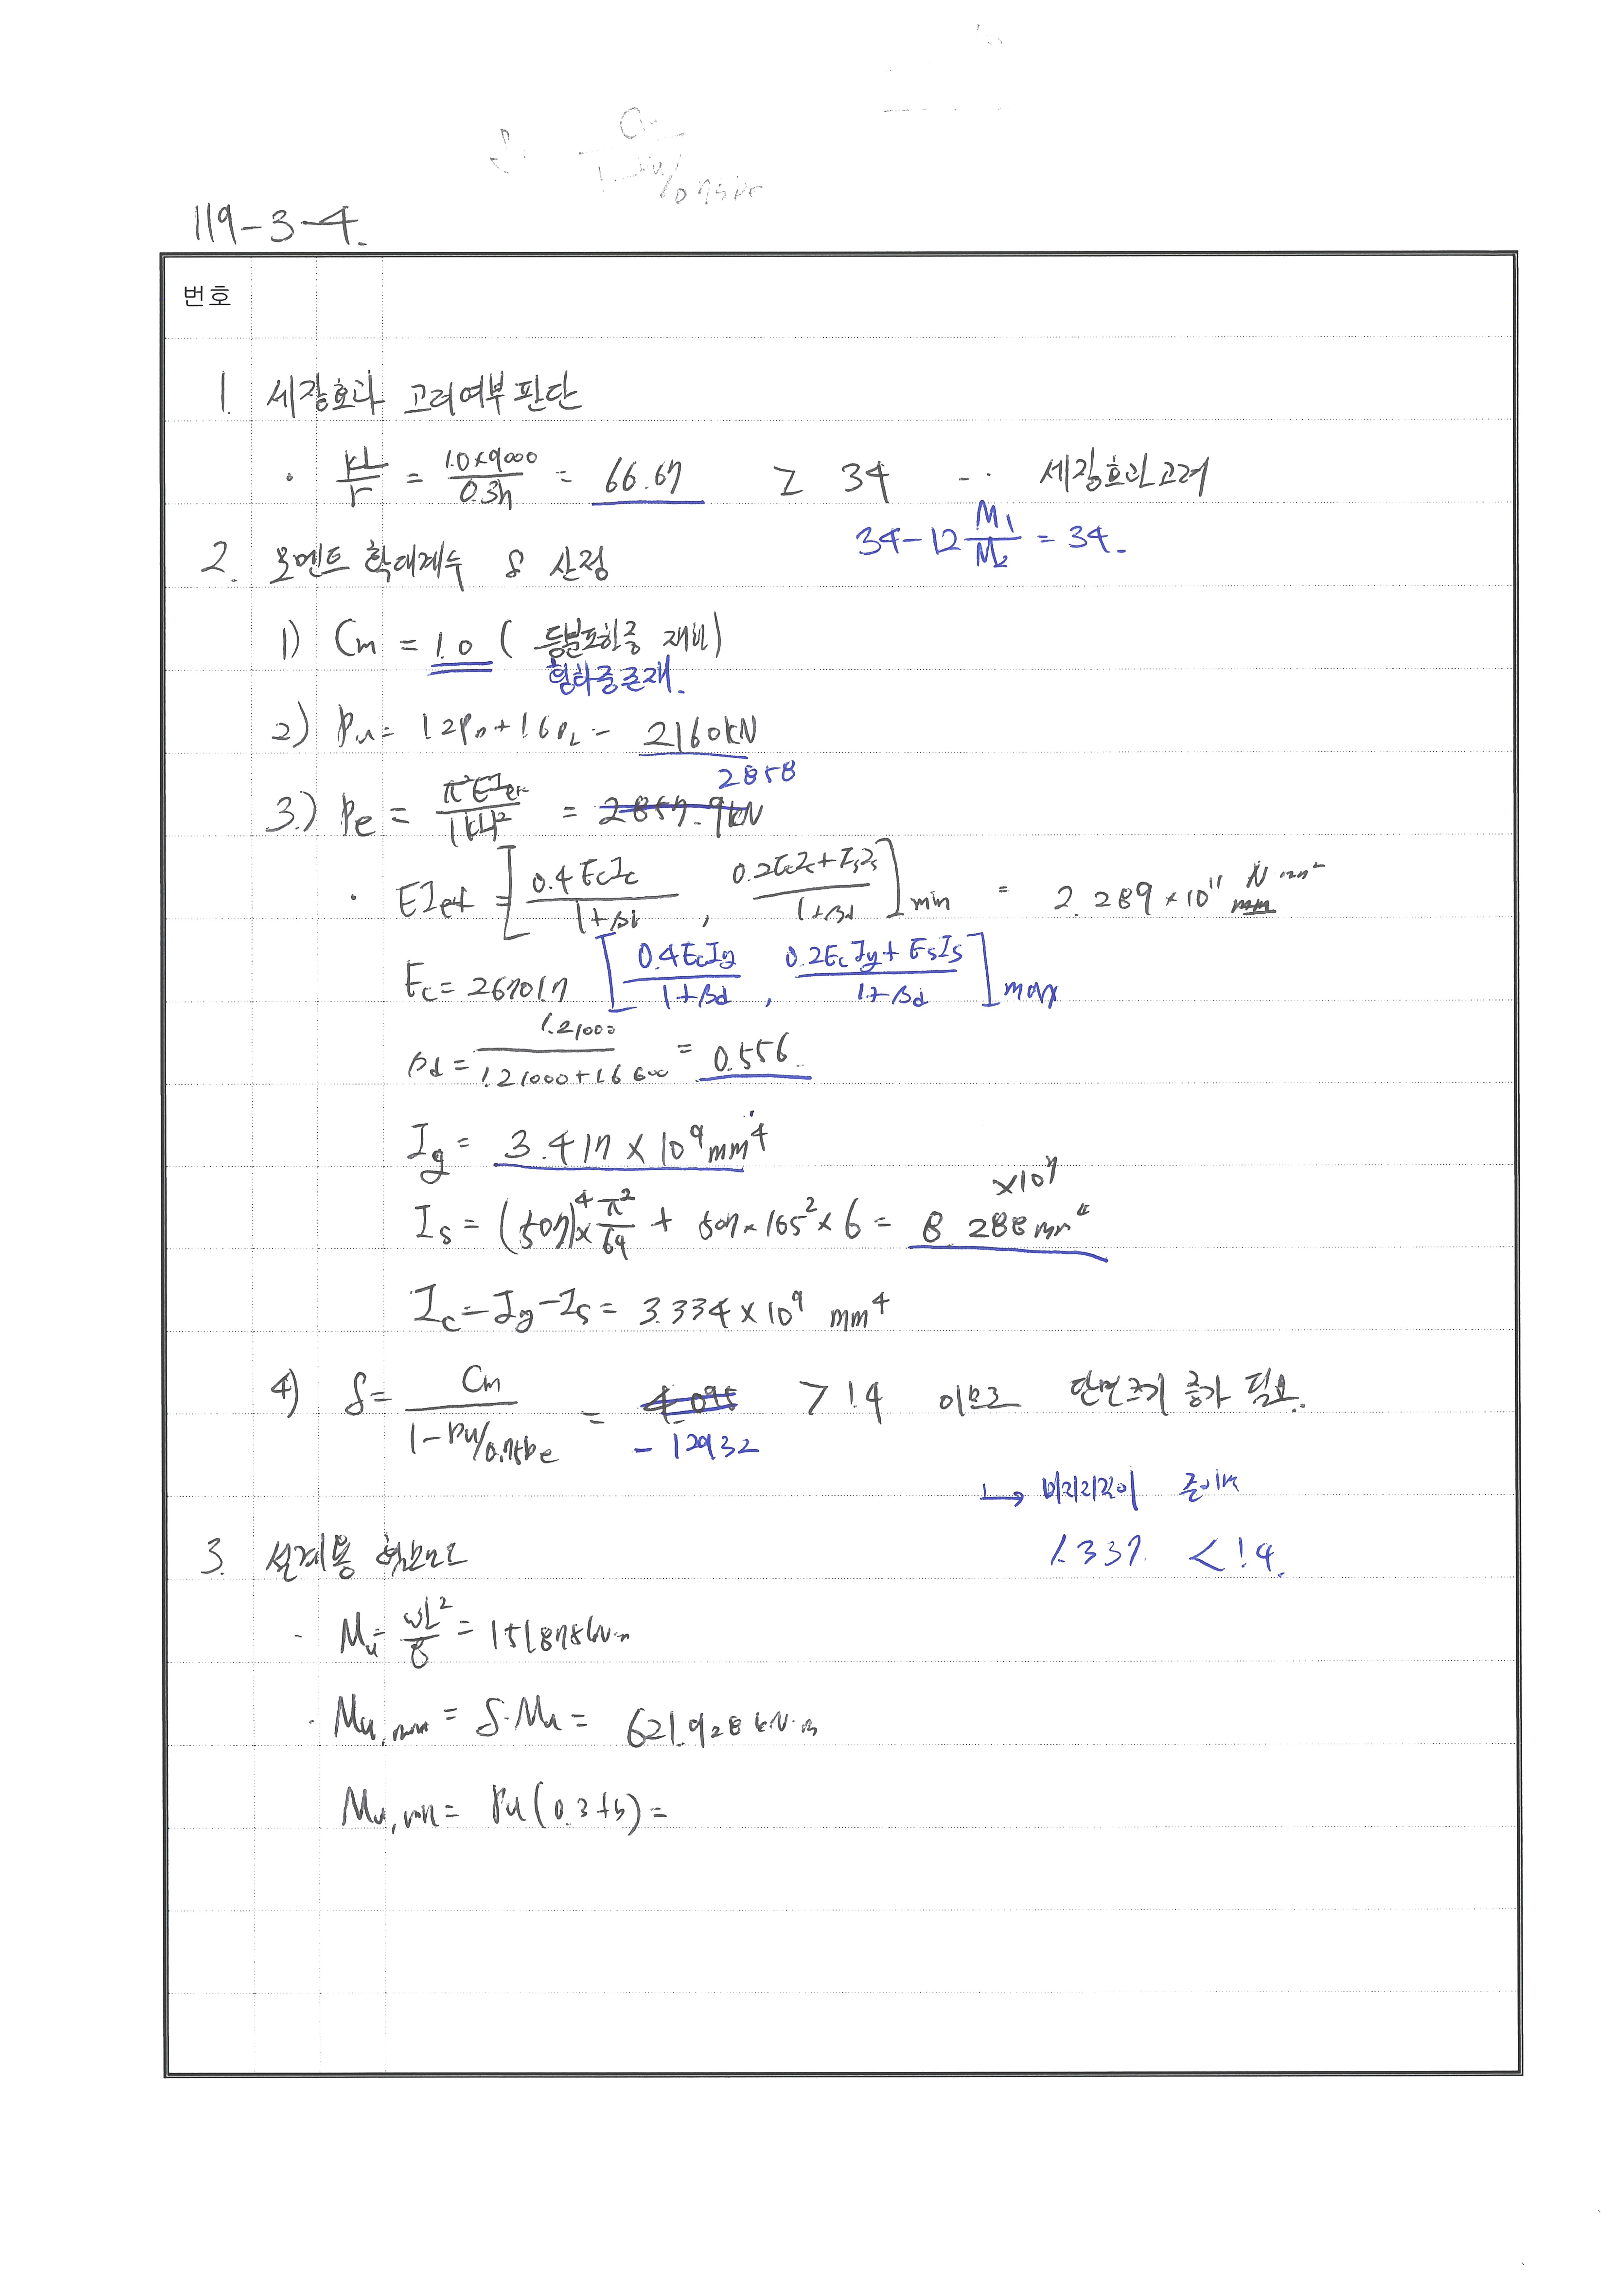 119-3-4.
번호
1. 세장효과 고려여부 판단
· kL/r = 1.0×9000/0.3h = 66.67 ≥ 34 -· 세장효과고려
34-12 M1/M2 = 34.
2. 모멘트 확대계수 δ 산정
1) Cm = 1.0 ( 등분포하중 재하)
횡하중존재.
2) Pu = 1.2PD+1.6PL = 2160kN
2858
3.) Pe = π²EIef/(kL)² = 2857.9kN
· EIef = [0.4EcIc/1+βd , 0.2EcIc+EsIs/1+βd]min = 2.289×10¹¹ N mm²
Ec = 26701.7 [0.4EcIg/1+βd , 0.2EcIg+EsIs/1+βd]max
βd = 1.2 1000/1.2 1000+1.6 600 = 0.556
Ig = 3.417×10⁹mm⁴
Is = (507)⁴×π²/64 + 507×165²×6 = 8.288mm⁴ ×10⁷
Ic = Ig-Is = 3.334×10⁹ mm⁴
4) δ = Cm/1-Pu/0.75Pe = > 1.4 이므로 단면크기 증가 필요.
- 129.32
↳ 비지지길이
1.337 < 1.4.
3. 설계용 휨모멘트
· Mu = wL²/8 = 151.875kN·m
· Mu,max = δ·Mu = 621.928 kN·m
Mu,min = Pu(0.3+h) =